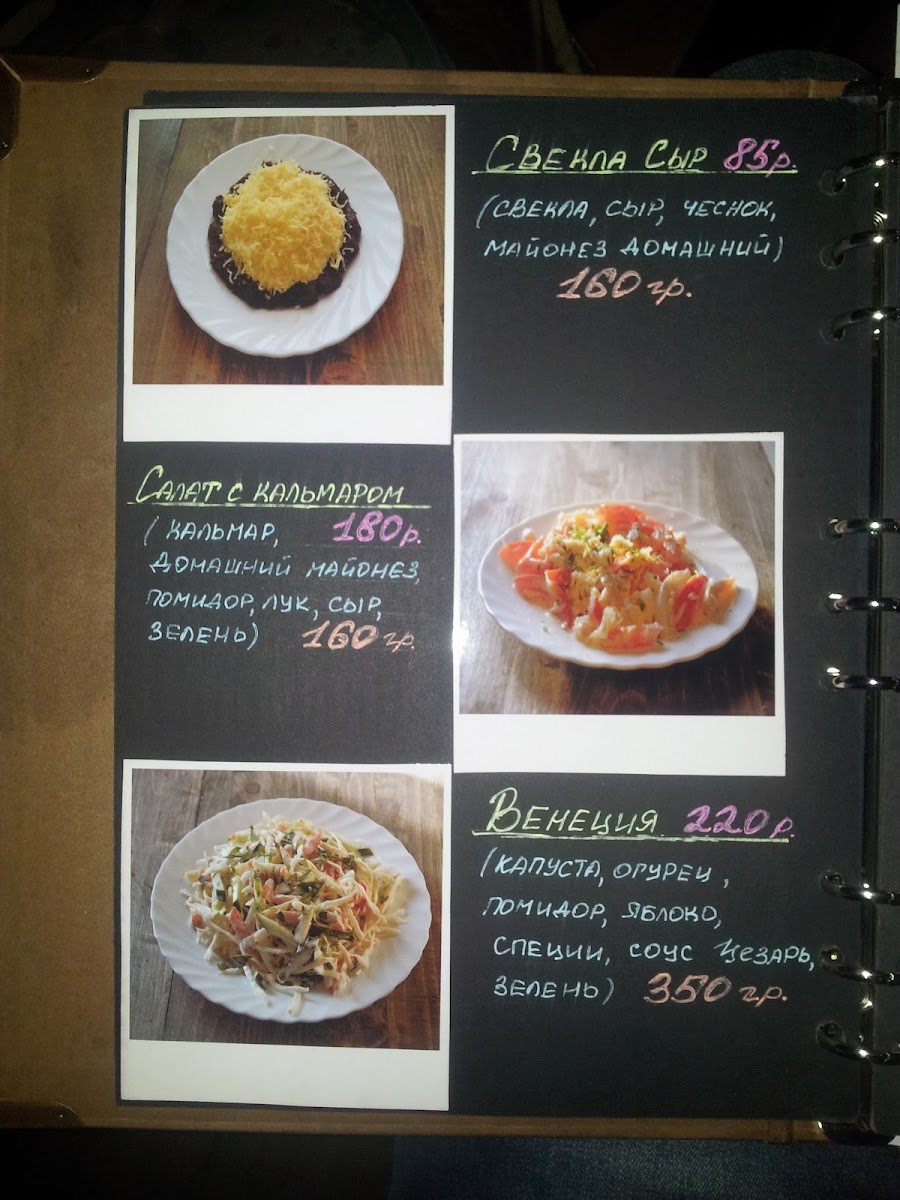 Свекла Сыр 85р.
(свекла, сыр, чеснок,
майонез домашний)
160 гр.
Салат с кальмаром
(кальмар, 180р.
домашний майонез,
помидор, лук, сыр,
зелень) 160 гр.
Венеция 220р.
(капуста, огурец,
помидор, яблоко,
специи, соус Цезарь,
зелень) 350 гр.